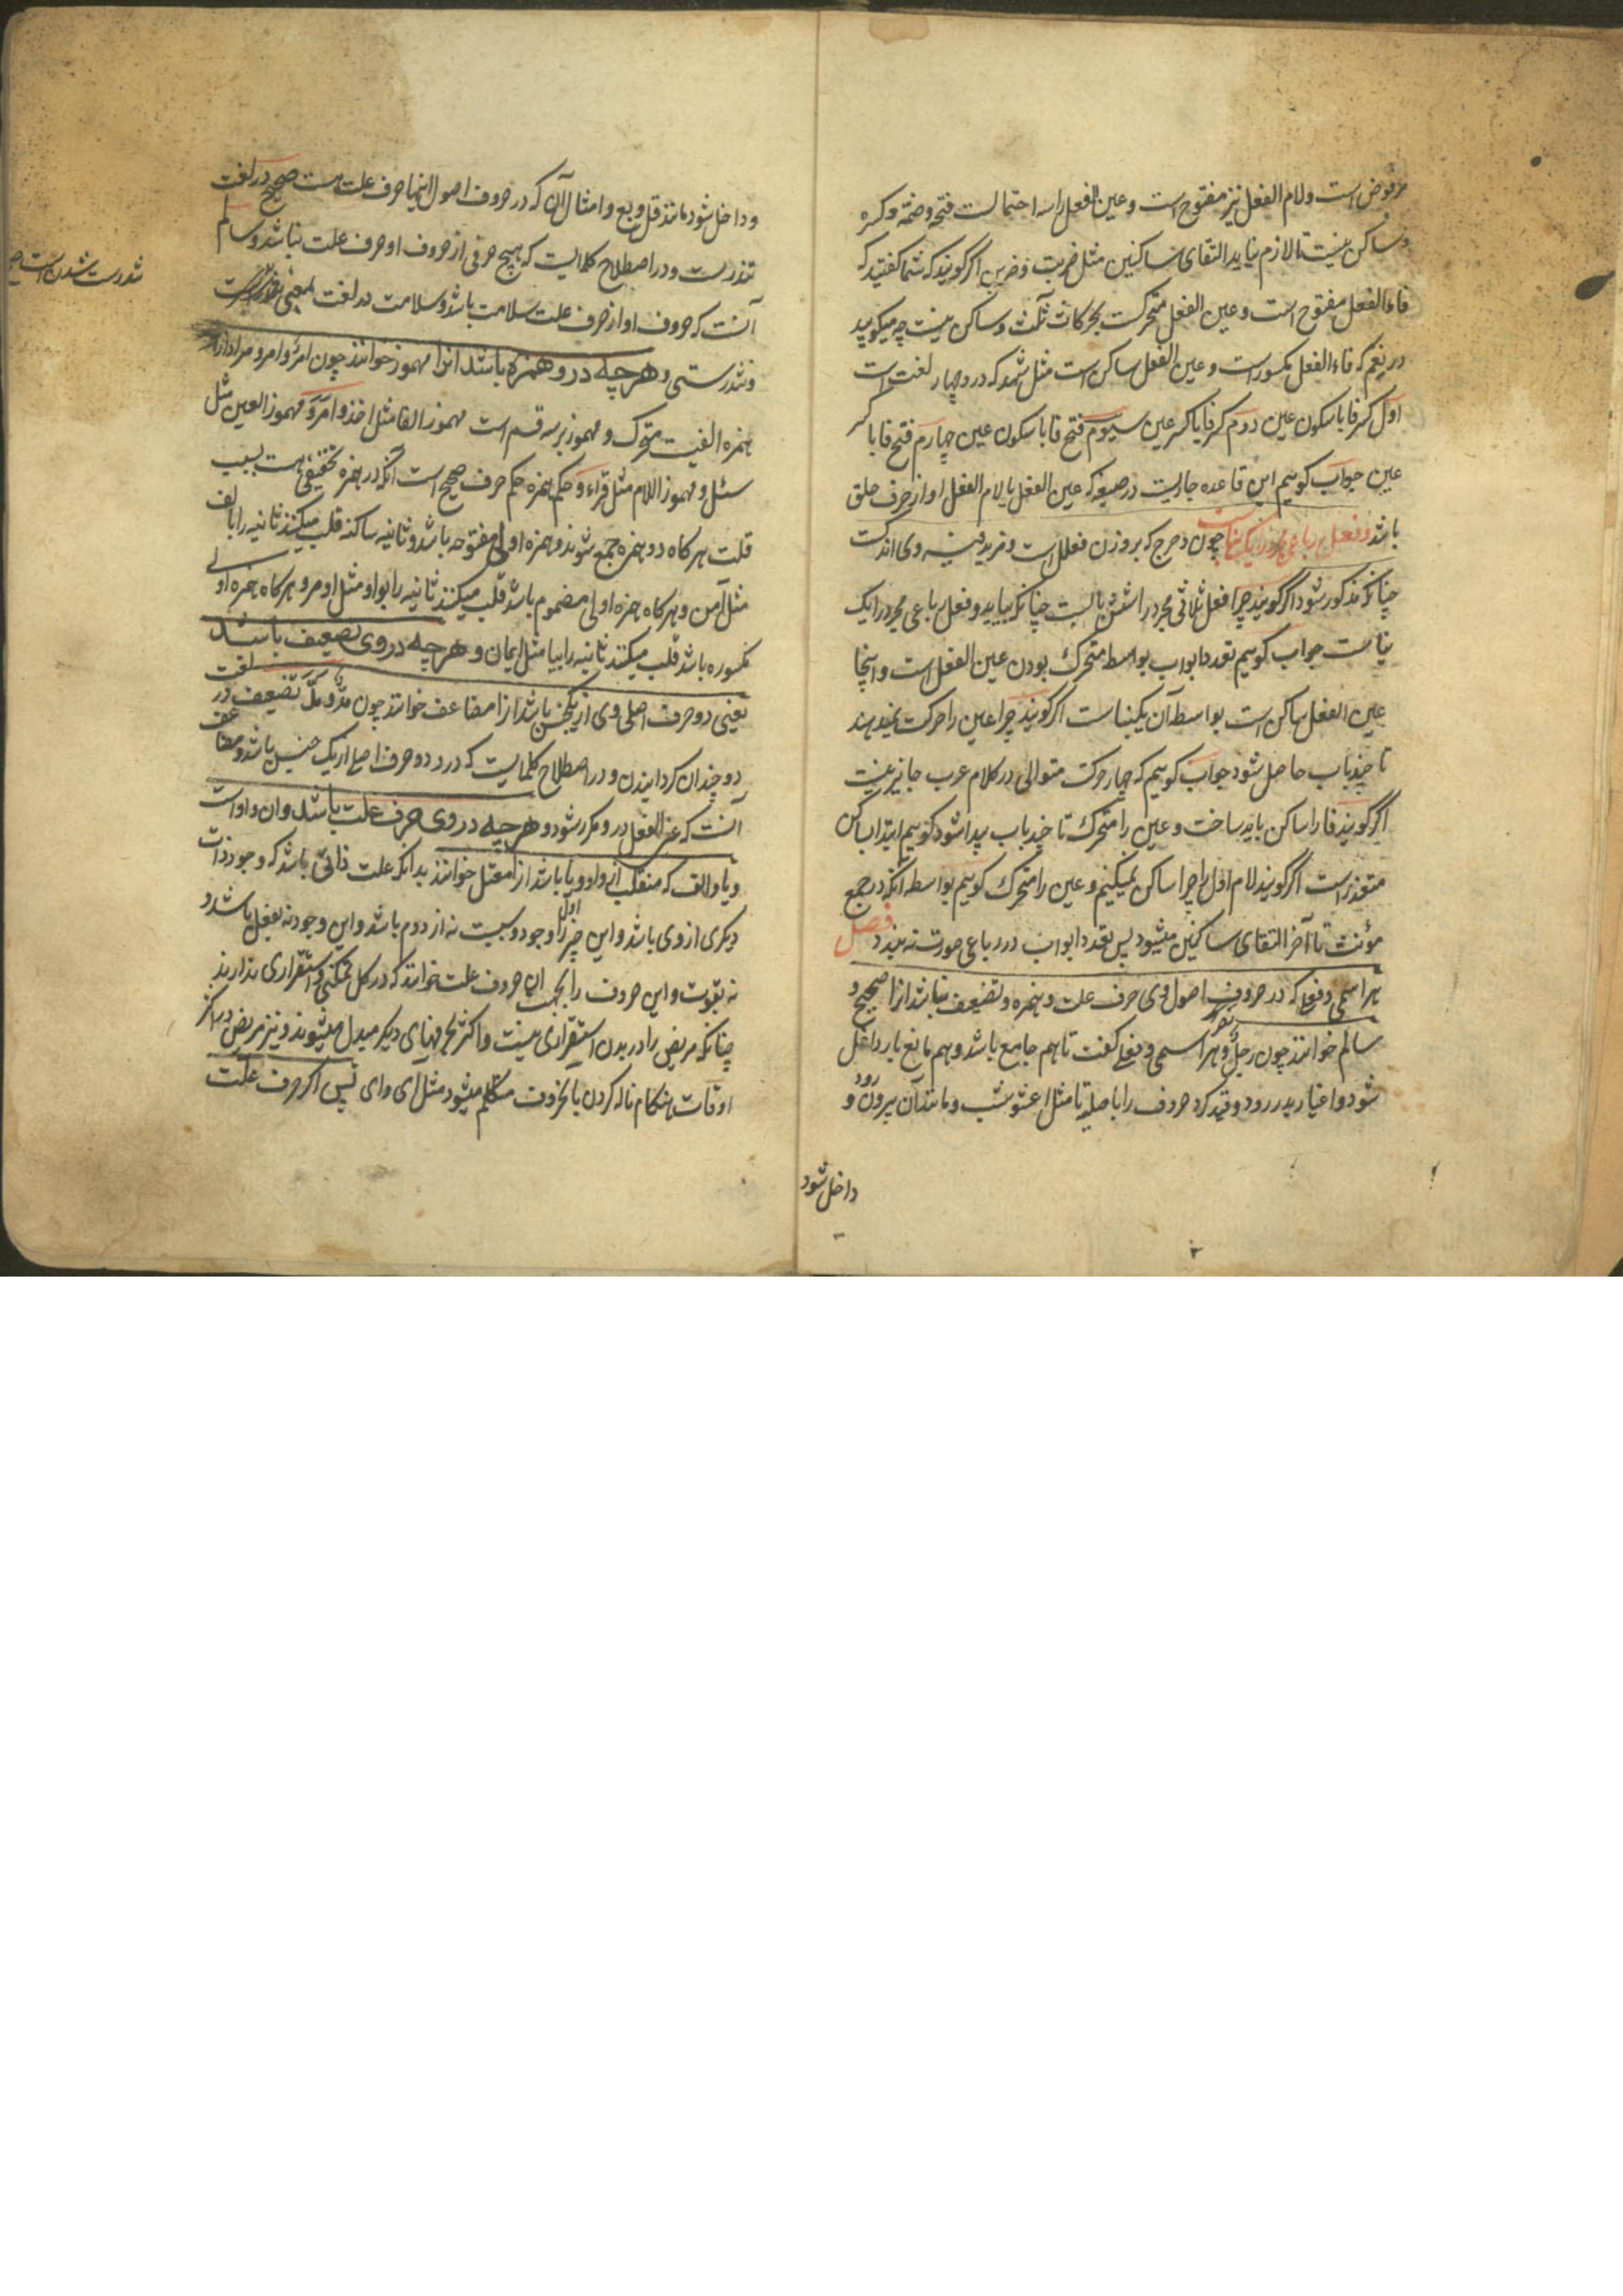 مرفوض است ولام الفعل نیز مفتوح است وعین الفعل را سه احتمالست فتحه وضمه وکسره
وساکن نیست تا لازم نیاید التقای ساکنین مثل ضربت وضربن اگر گویند که شما گفتید که
فاء الفعل مفتوح است وعین الفعل متحرکست بحرکات ثلث وساکن نیست چه میگویید
در نعم که فاء الفعل مکسور است وعین الفعل ساکن است مثل شهد که درو چهار لغت است
اول کسر فا با سکون عین دوم کسر فا با کسر عین سیوم فتح فا با سکون عین چهارم فتح فا با کسر
عین جواب کوییم این قاعده جاریست در صیغه که عین الفعل یا لام الفعل او از حرف حلق
باشد وفعل رباعی مجرد را یک بناست چون دحرج که بر وزن فعلل است ومزید فیه وی اندکست
چنانکه مذکور شود اگر گویند چرا فعل ثلاثی مجرد را شش بابست چنانکه بیاید وفعل رباعی مجرد را یک
بناست جواب کوییم تعدد ابواب بواسطه متحرک بودن عین الفعل است واینجا
عین الفعل ساکن است بواسطه آن یکبناست اگر کویند چرا عین را حرکت نمیدهند
تا چند باب حاصل شود جواب کوییم که چهار حرکت متوالی در کلام عرب جایز نیست
اگر گویند فا را ساکن باید ساخت وعین را متحرک تا چند باب پیدا شود کوییم ابتدا بساکن
متعذر است اگر گویند لام اول را چرا ساکن نمیکنیم وعین را متحرک کوییم بواسطه آنکه در جمع
مؤنث تا آخر التقای ساکنین میشود پس تعدد ابواب در رباعی صورت نه بندد فصل
هر اسمی وفعلی که در حروف اصول وی حرف علت وهمزه وتضعیف نباشد انرا صحیح و
سالم خوانند چون رجل ونصر وهر اسمی وفعلی گفت تا هم جامع باشد وهم مانع یار داخل
شود واغیار بدر رود وقید کرد حروف را باصلیه تا مثل اعشوشب ومانند آن بیرون رود و
داخل شود
وداخل شود مانند قل وبع وامثال آن که در حروف اصول اینها حرف علت هست صحیح در لغت
تندرست ودر اصطلاح کلمایست که هیچ حرفی از حروف او حرف علت نباشد وسالم
آنست که حروف او از حرف علت سلامت باشد وسلامت در لغت بمعنی
وتندرستی وهرچه درو همزه باشد انرا مهموز خوانند چون امر وامرو مراد از
همزه الفیست متحرک ومهموز بر سه قسم است مهموز الفا مثل اخذ وامر ومهموز العین مثل
سئل ومهموز اللام مثل قراء وحکم همزه حکم حرف صحیح است آنکه در همزه تخفیفی هست بسبب
قلت هر کاه دو همزه جمع شوند وهمزه اولی مفتوحه باشد وثانیه ساکنه قلب میکنند ثانیه را بالف
مثل آمن وهر کاه همزه اولی مضموم باشد قلب میکنند ثانیه را بواو مثل اومر وهر کاه همزه اولی
مکسوره باشد قلب میکنند ثانیه را بیا مثل ایمان وهرچه در وی تضعیف باشد
یعنی دو حرف اصلی وی از یکجنس باشد انرا مضاعف خوانند چون مد وملّ تضعیف در لغت
دو چندان کردانیدن ودر اصطلاح کلمایست که درو دو حرف اصلی از یک جنس باشد ومضاعف
آنست که عین الفعل درو مکرر شود وهرچه در وی حرف علت باشد وان واو است
ویا والف که منقلب از واو ویا باشد انرا معتل خوانند بدانکه علت ذاتی باشد که وجود ذات
دیکری از وی باشد واین چیز اول را وجود نیست نه از دوم باشد واین وجود نه بفعل باشد و
نه بقوت واین حروف را بجهت آن حروف علت خوانند که در کل تمکنی واستقراری ندارند
چنانکه مریض را در بدن استقراری نیست واکثر بحرفهای دیگر مبدل میشوند ونیز مریض در اکثر
اوقات هنکام ناله کردن باین حروف متکلم میشود مثل ای وای پس اکر حرف علت
تندرست شدن است